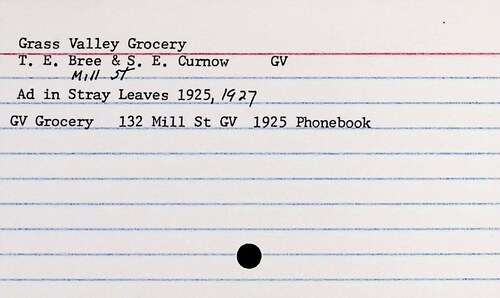 Grass Valley Grocery
T. E. Bree & S. E. Curnow GV
Mill St
Ad in Stray Leaves 1925, 1927
GV Grocery 132 Mill St GV 1925 Phonebook